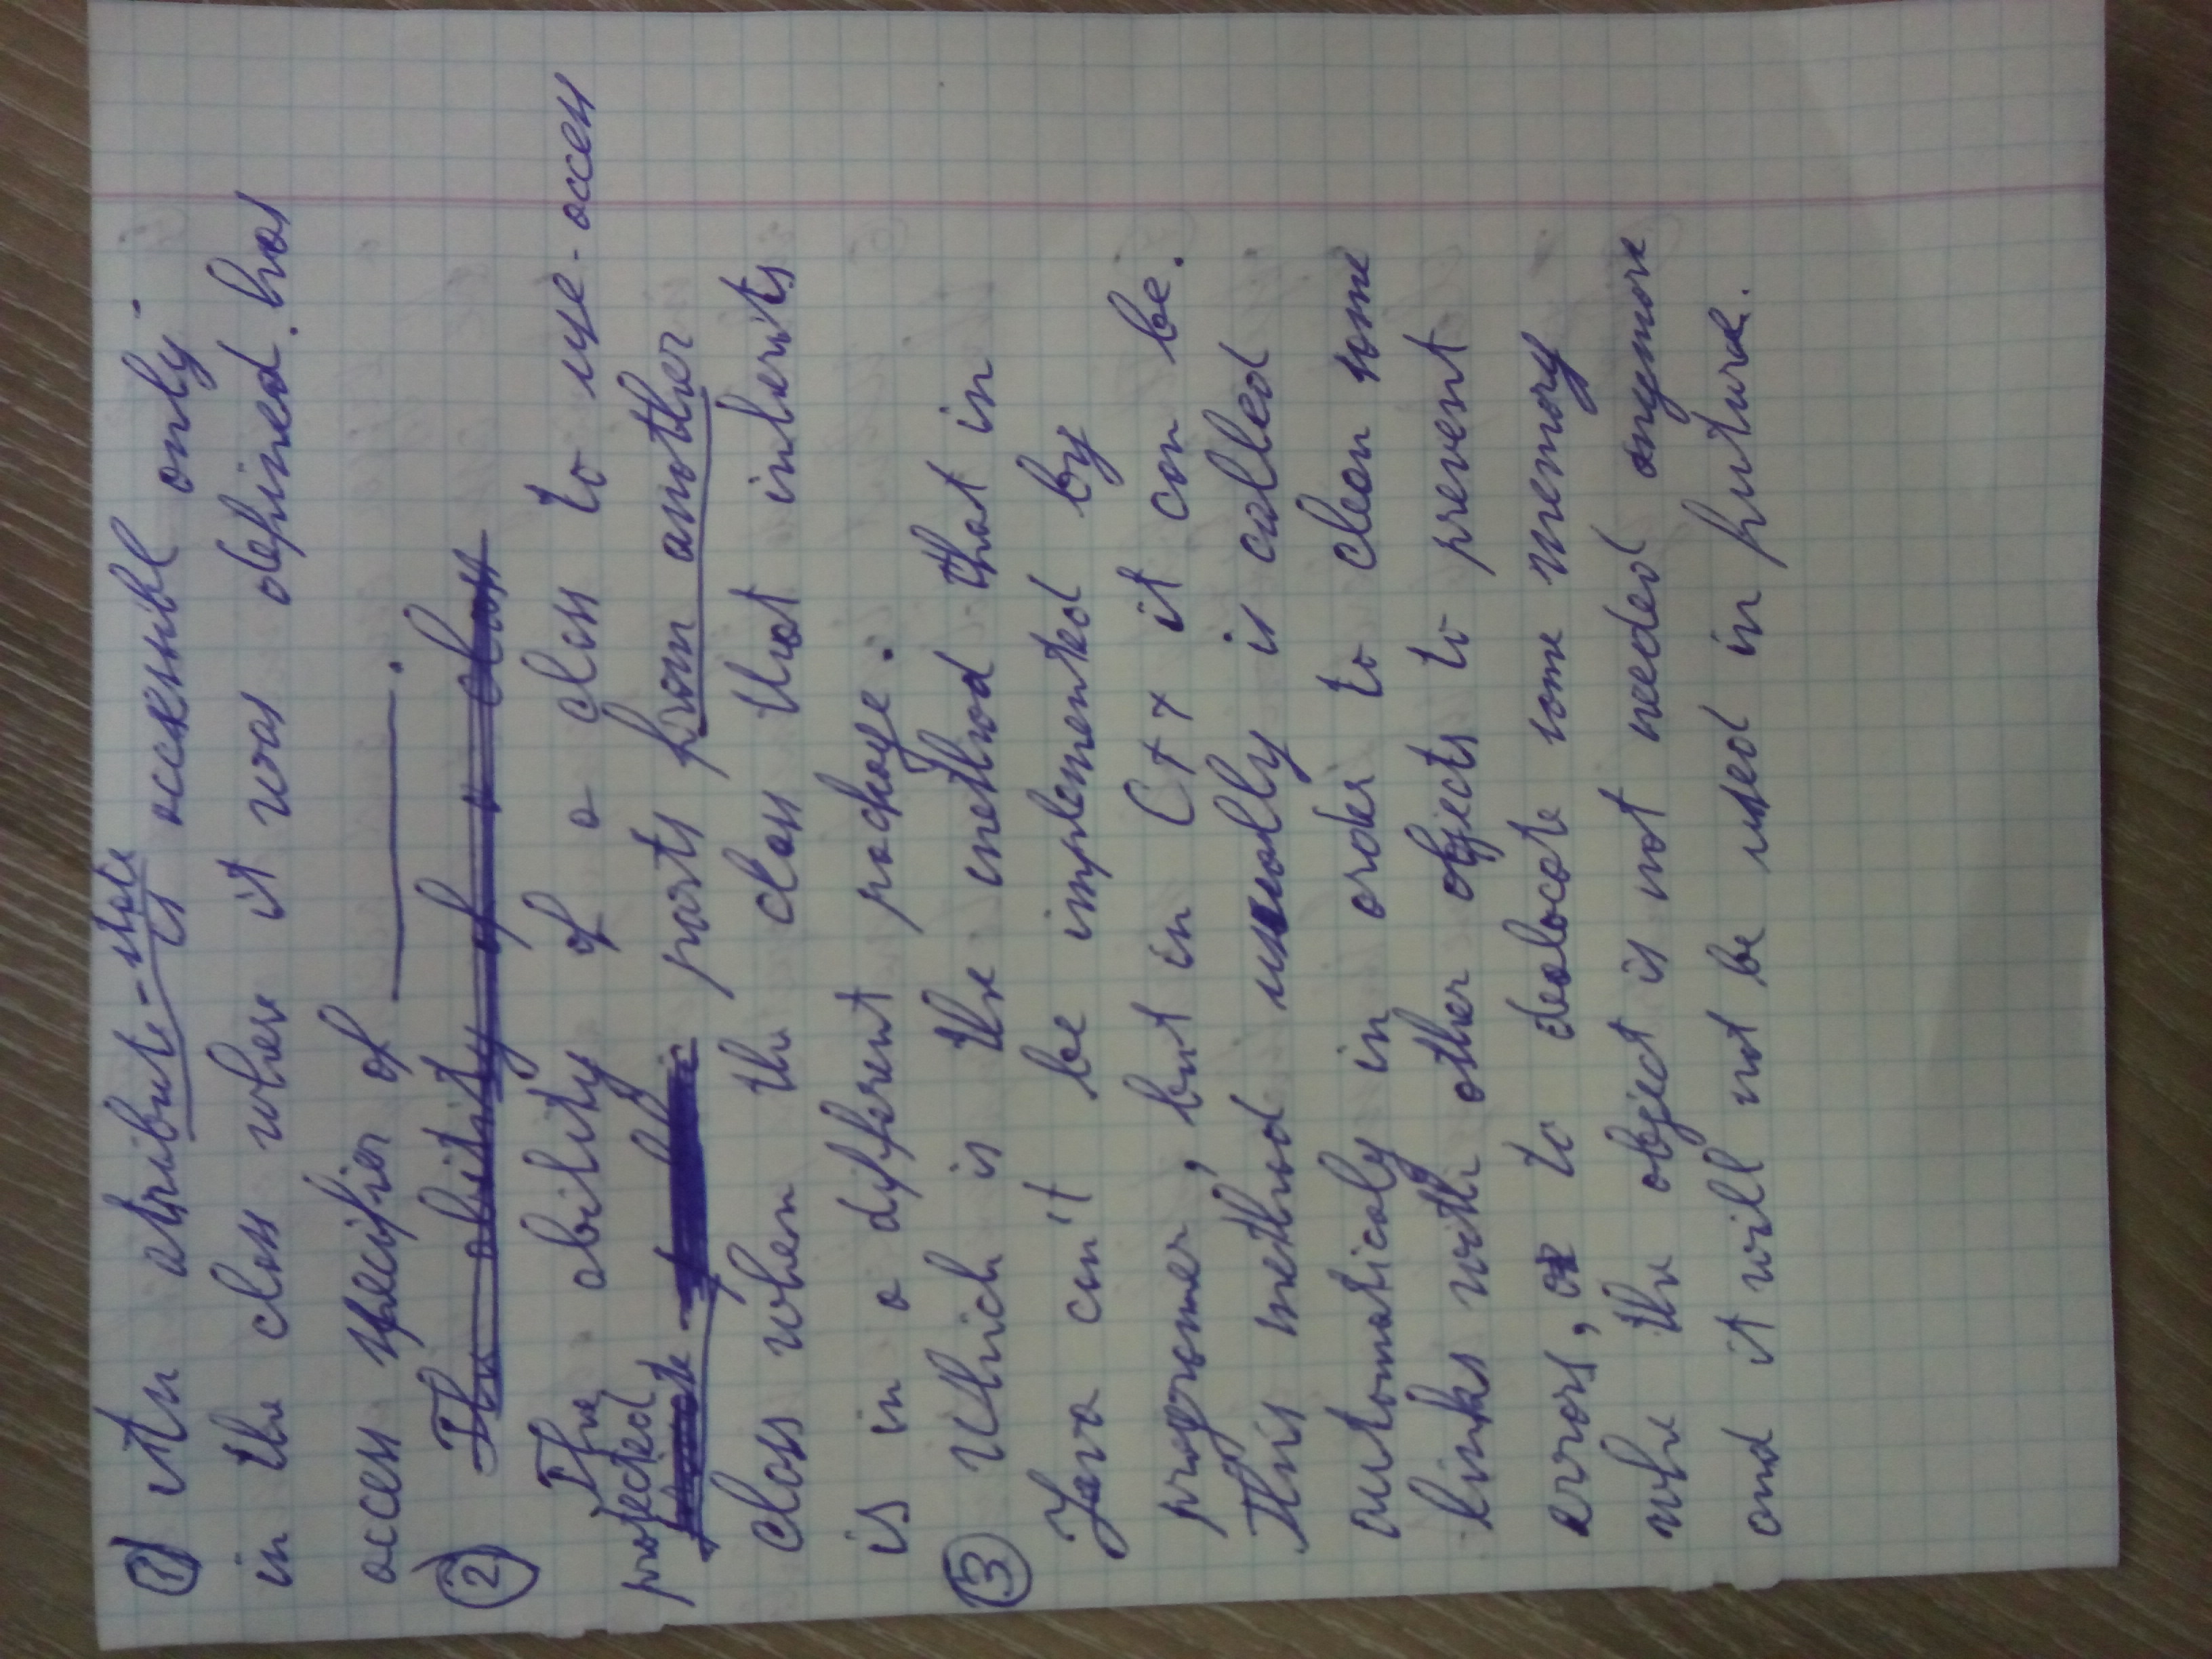 ① An atribute-state is accesible only
in the class where it was defined. has
access specifier of ______.
② The ability of a class
The ability of a class to use-access
protected private parts from another
class when the class that inherits
is in a different package.
③ Which is the method that in
Java can't be implemented by
programer, but in C++ it can be.
This method usually is called
automaticaly in order to clean some
links with other objects to prevent
errors, or to dealocate some memory
whe the object is not needed anymore
and it will not be used in future.